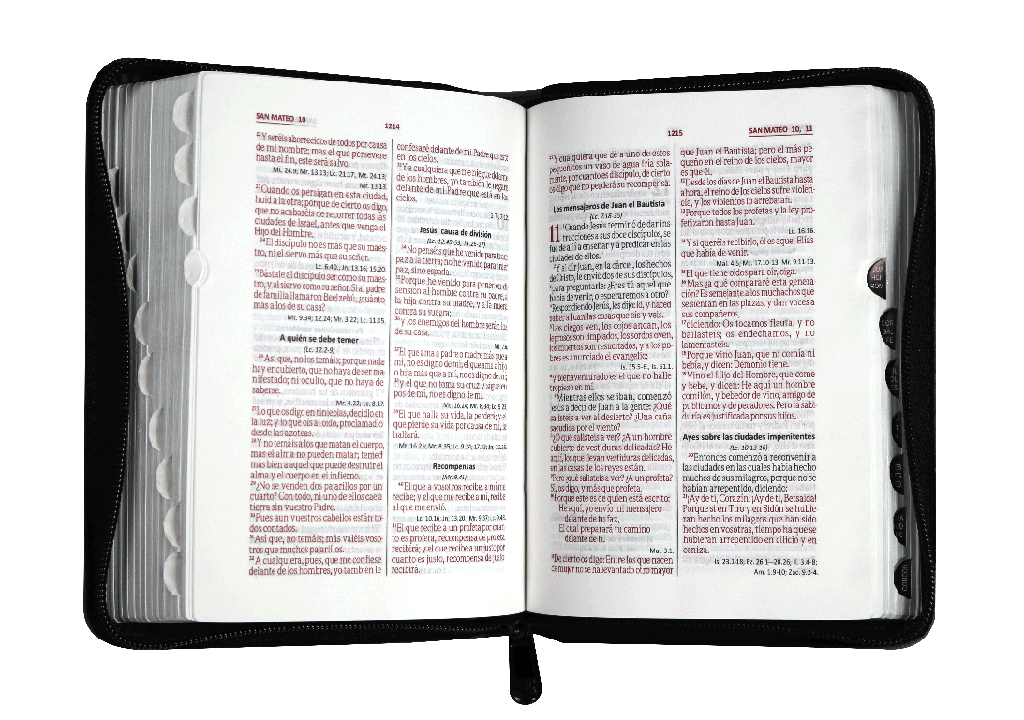 SAN MATEO 10
1214
²²Y seréis aborrecidos de todos por causa
de mi nombre; mas el que persevere
hasta el fin, éste será salvo.
Mt. 24.9; Mr. 13.13; Lc. 21.17; Mt. 24.13;
Mr. 13.13.
²³Cuando os persigan en esta ciudad,
huid a la otra; porque de cierto os digo,
que no acabaréis de recorrer todas las
ciudades de Israel, antes que venga el
Hijo del Hombre.
²⁴El discípulo no es más que su maes-
tro, ni el siervo más que su señor.
Lc. 6.40; Jn. 13.16; 15.20.
²⁵Bástale al discípulo ser como su maes-
tro, y al siervo como su señor. Si al padre
de familia llamaron Beelzebú, ¿cuánto
más a los de su casa?
Mt. 9.34; 12.24; Mr. 3.22; Lc. 11.15.
A quién se debe temer
(Lc. 12.2-9)
²⁶Así que, no los temáis; porque nada
hay encubierto, que no haya de ser ma-
nifestado; ni oculto, que no haya de
saberse.
Mr. 4.22; Lc. 8.17.
²⁷Lo que os digo en tinieblas, decidlo en
la luz; y lo que oís al oído, proclamadlo
desde las azoteas.
²⁸Y no temáis a los que matan el cuerpo,
mas el alma no pueden matar; temed
más bien a aquel que puede destruir el
alma y el cuerpo en el infierno.
²⁹¿No se venden dos pajarillos por un
cuarto? Con todo, ni uno de ellos cae a
tierra sin vuestro Padre.
³⁰Pues aun vuestros cabellos están to-
dos contados.
³¹Así que, no temáis; más valéis voso-
tros que muchos pajarillos.
³²A cualquiera, pues, que me confiese
delante de los hombres, yo también le
confesaré delante de mi Padre que está
en los cielos.
³³Y a cualquiera que me niegue delante
de los hombres, yo también le negaré
delante de mi Padre que está en los
cielos.
Jesús, causa de división
(Lc. 12.49-53; 14.26-27)
³⁴No penséis que he venido para traer
paz a la tierra; no he venido para traer
paz, sino espada.
³⁵Porque he venido para poner en di-
sensión al hombre contra su padre, a
la hija contra su madre, y a la nuera
contra su suegra;
³⁶y los enemigos del hombre serán los
de su casa.
³⁷El que ama a padre o madre más que a
mí, no es digno de mí; el que ama a hijo
o hija más que a mí, no es digno de mí;
³⁸y el que no toma su cruz y sigue en
pos de mí, no es digno de mí.
³⁹El que halla su vida, la perderá; y el
que pierde su vida por causa de mí, la
hallará.
Recompensas
(Mr. 9.41)
⁴⁰El que a vosotros recibe, a mí me
recibe; y el que me recibe a mí, recibe
al que me envió.
⁴¹El que recibe a un profeta por cuan-
to es profeta, recompensa de profeta
recibirá; y el que recibe a un justo por
cuanto es justo, recompensa de justo
recibirá.
1215
SAN MATEO 10, 11
⁴²Y cualquiera que dé a uno de estos
pequeñitos un vaso de agua fría sola-
mente, por cuanto es discípulo, de cierto
os digo que no perderá su recompensa.
Los mensajeros de Juan el Bautista
(Lc. 7.18-35)
11 ¹Cuando Jesús terminó de dar ins-
trucciones a sus doce discípulos, se
fue de allí a enseñar y a predicar en las
ciudades de ellos.
²Y al oír Juan, en la cárcel, los hechos
de Cristo, le envió dos de sus discípulos,
³para preguntarle: ¿Eres tú aquel que
había de venir, o esperaremos a otro?
⁴Respondiendo Jesús, les dijo: Id, y haced
saber a Juan las cosas que oís y veis.
⁵Los ciegos ven, los cojos andan, los
leprosos son limpiados, los sordos oyen,
los muertos son resucitados, y a los po-
bres es anunciado el evangelio;
Is. 35.5-6; Is. 61.1.
⁶y bienaventurado es el que no halle
tropiezo en mí.
⁷Mientras ellos se iban, comenzó
Jesús a decir de Juan a la gente: ¿Qué
salisteis a ver al desierto? ¿Una caña
sacudida por el viento?
⁸¿O qué salisteis a ver? ¿A un hombre
cubierto de vestiduras delicadas? He
aquí, los que llevan vestiduras delicadas,
en las casas de los reyes están.
⁹Pero ¿qué salisteis a ver? ¿A un profeta?
Sí, os digo, y más que profeta.
¹⁰Porque éste es de quien está escrito:
He aquí, yo envío mi mensajero
delante de tu faz,
El cual preparará tu camino
delante de ti.
Mal. 3.1.
¹¹De cierto os digo: Entre los que nacen
de mujer no se ha levantado otro mayor
que Juan el Bautista; pero el más pe-
queño en el reino de los cielos, mayor
es que él.
¹²Desde los días de Juan el Bautista hasta
ahora, el reino de los cielos sufre violen-
cia, y los violentos lo arrebatan.
¹³Porque todos los profetas y la ley pro-
fetizaron hasta Juan.
Lc. 16.16.
¹⁴Y si queréis recibirlo, él es aquel Elías
que había de venir.
Mal. 4.5; Mt. 17.10-13; Mr. 9.11-13.
¹⁵El que tiene oídos para oír, oiga.
¹⁶Mas ¿a qué compararé esta genera-
ción? Es semejante a los muchachos que
se sientan en las plazas, y dan voces a
sus compañeros,
¹⁷diciendo: Os tocamos flauta, y no
bailasteis; os endechamos, y no
lamentasteis.
¹⁸Porque vino Juan, que ni comía ni
bebía, y dicen: Demonio tiene.
¹⁹Vino el Hijo del Hombre, que come
y bebe, y dicen: He aquí un hombre
comilón, y bebedor de vino, amigo de
publicanos y de pecadores. Pero la sabi-
duría es justificada por sus hijos.
Ayes sobre las ciudades impenitentes
(Lc. 10.13-16)
²⁰Entonces comenzó a reconvenir a
las ciudades en las cuales había hecho
muchos de sus milagros, porque no se
habían arrepentido, diciendo:
²¹¡Ay de ti, Corazín! ¡Ay de ti, Betsaida!
Porque si en Tiro y en Sidón se hubie-
ran hecho los milagros que han sido
hechos en vosotras, tiempo ha que se
hubieran arrepentido en cilicio y en
ceniza.
Is. 23.1-18; Ez. 26.1—28.26; Jl. 3.4-8;
Am. 1.9-10; Zac. 9.2-4.